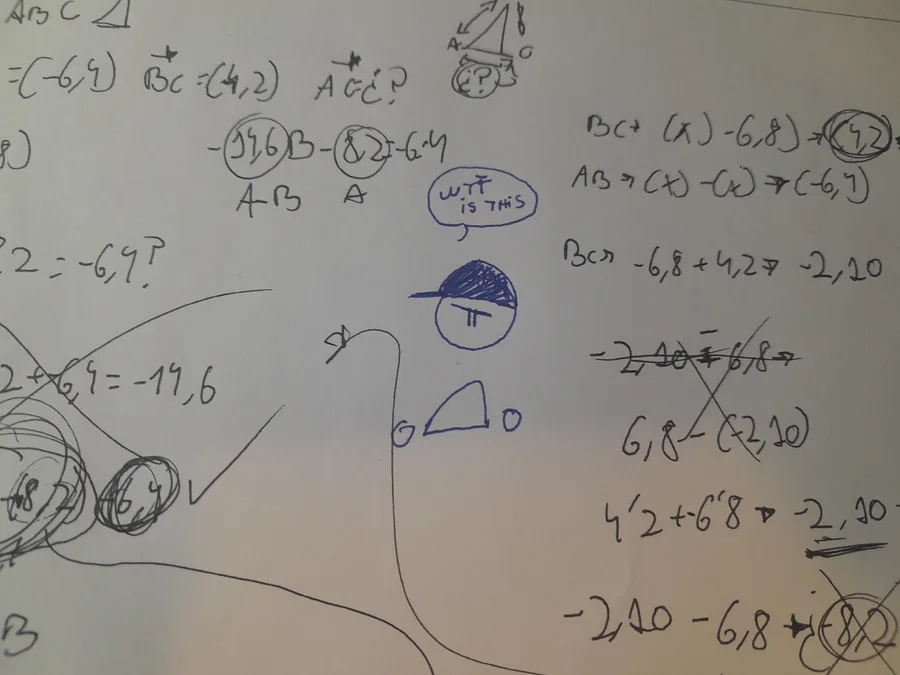 ABC
=(-6,4) BC =(4,2) AC=¿?
A
¿?
8)
-14,6 B - 8,2 = -6,4
A-B A
WTF
IS THIS
2 = -6,4?
2 + -6,4 = -14,6
-6,4
B
BC→ (x) - 6,8) → (4,2)
AB → (x) - (x) → (-6,4)
BC→ -6,8 + 4,2 → -2,10
6,8 - (-2,10)
4'2 + -6'8 → -2,10
-2,10 - 6,8 → ¿-8,2